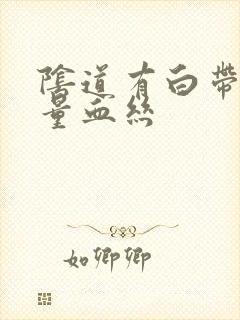 陰道有白帶
量血絲
如卿卿